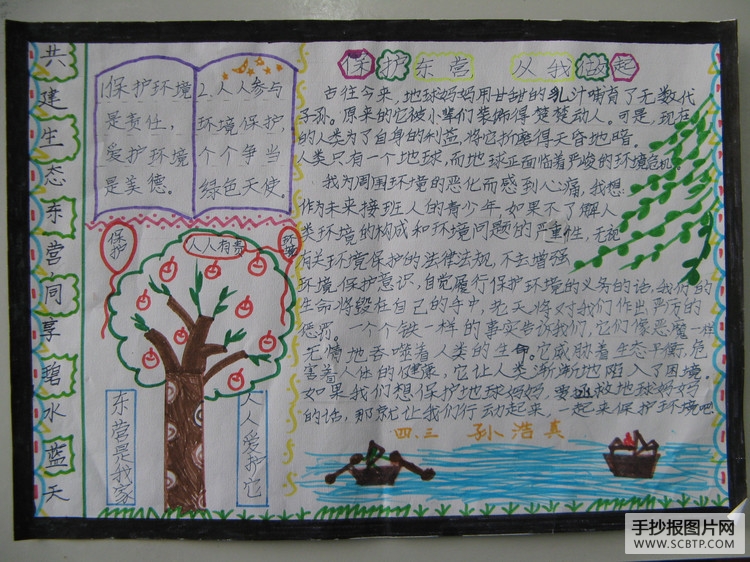 共建生态东营同享碧水蓝天
1.保护环境
是责任，
爱护环境
是美德。
2.人人参与
环境保护，
个个争当
绿色天使
保护
人人有责
环境
东营是我家
人人爱护它
保护东营 从我做起
古往今来，地球妈妈用甘甜的乳汁哺育了无数代
子孙。原来的它被小辈们装饰得楚楚动人。可是，现在
的人类为了自身的利益，将它折磨得天昏地暗。
人类只有一个地球，而地球正面临着严峻的环境危机。
我为周围环境的恶化而感到心痛，我想
作为未来接班人的青少年，如果不了解人
类环境的构成和环境问题的严重性，无视
有关环境保护的法律法规，不去增强
环境保护意识，自觉履行保护环境的义务的话，我们的
生命将毁在自己的手中，老天将对我们作出严厉的
惩罚。一个个铁一样的事实告诉我们，它们像恶魔一样
无情地吞噬着人类的生命。它威胁着生态平衡，危
害着人体的健康，它让人类渐渐地陷入了困境。
如果我们想保护地球妈妈，要拯救地球妈妈
的话，那就让我们行动起来，一起来保护环境吧
四.三 孙浩真
手抄报图片网
WWW.SCBTP.COM